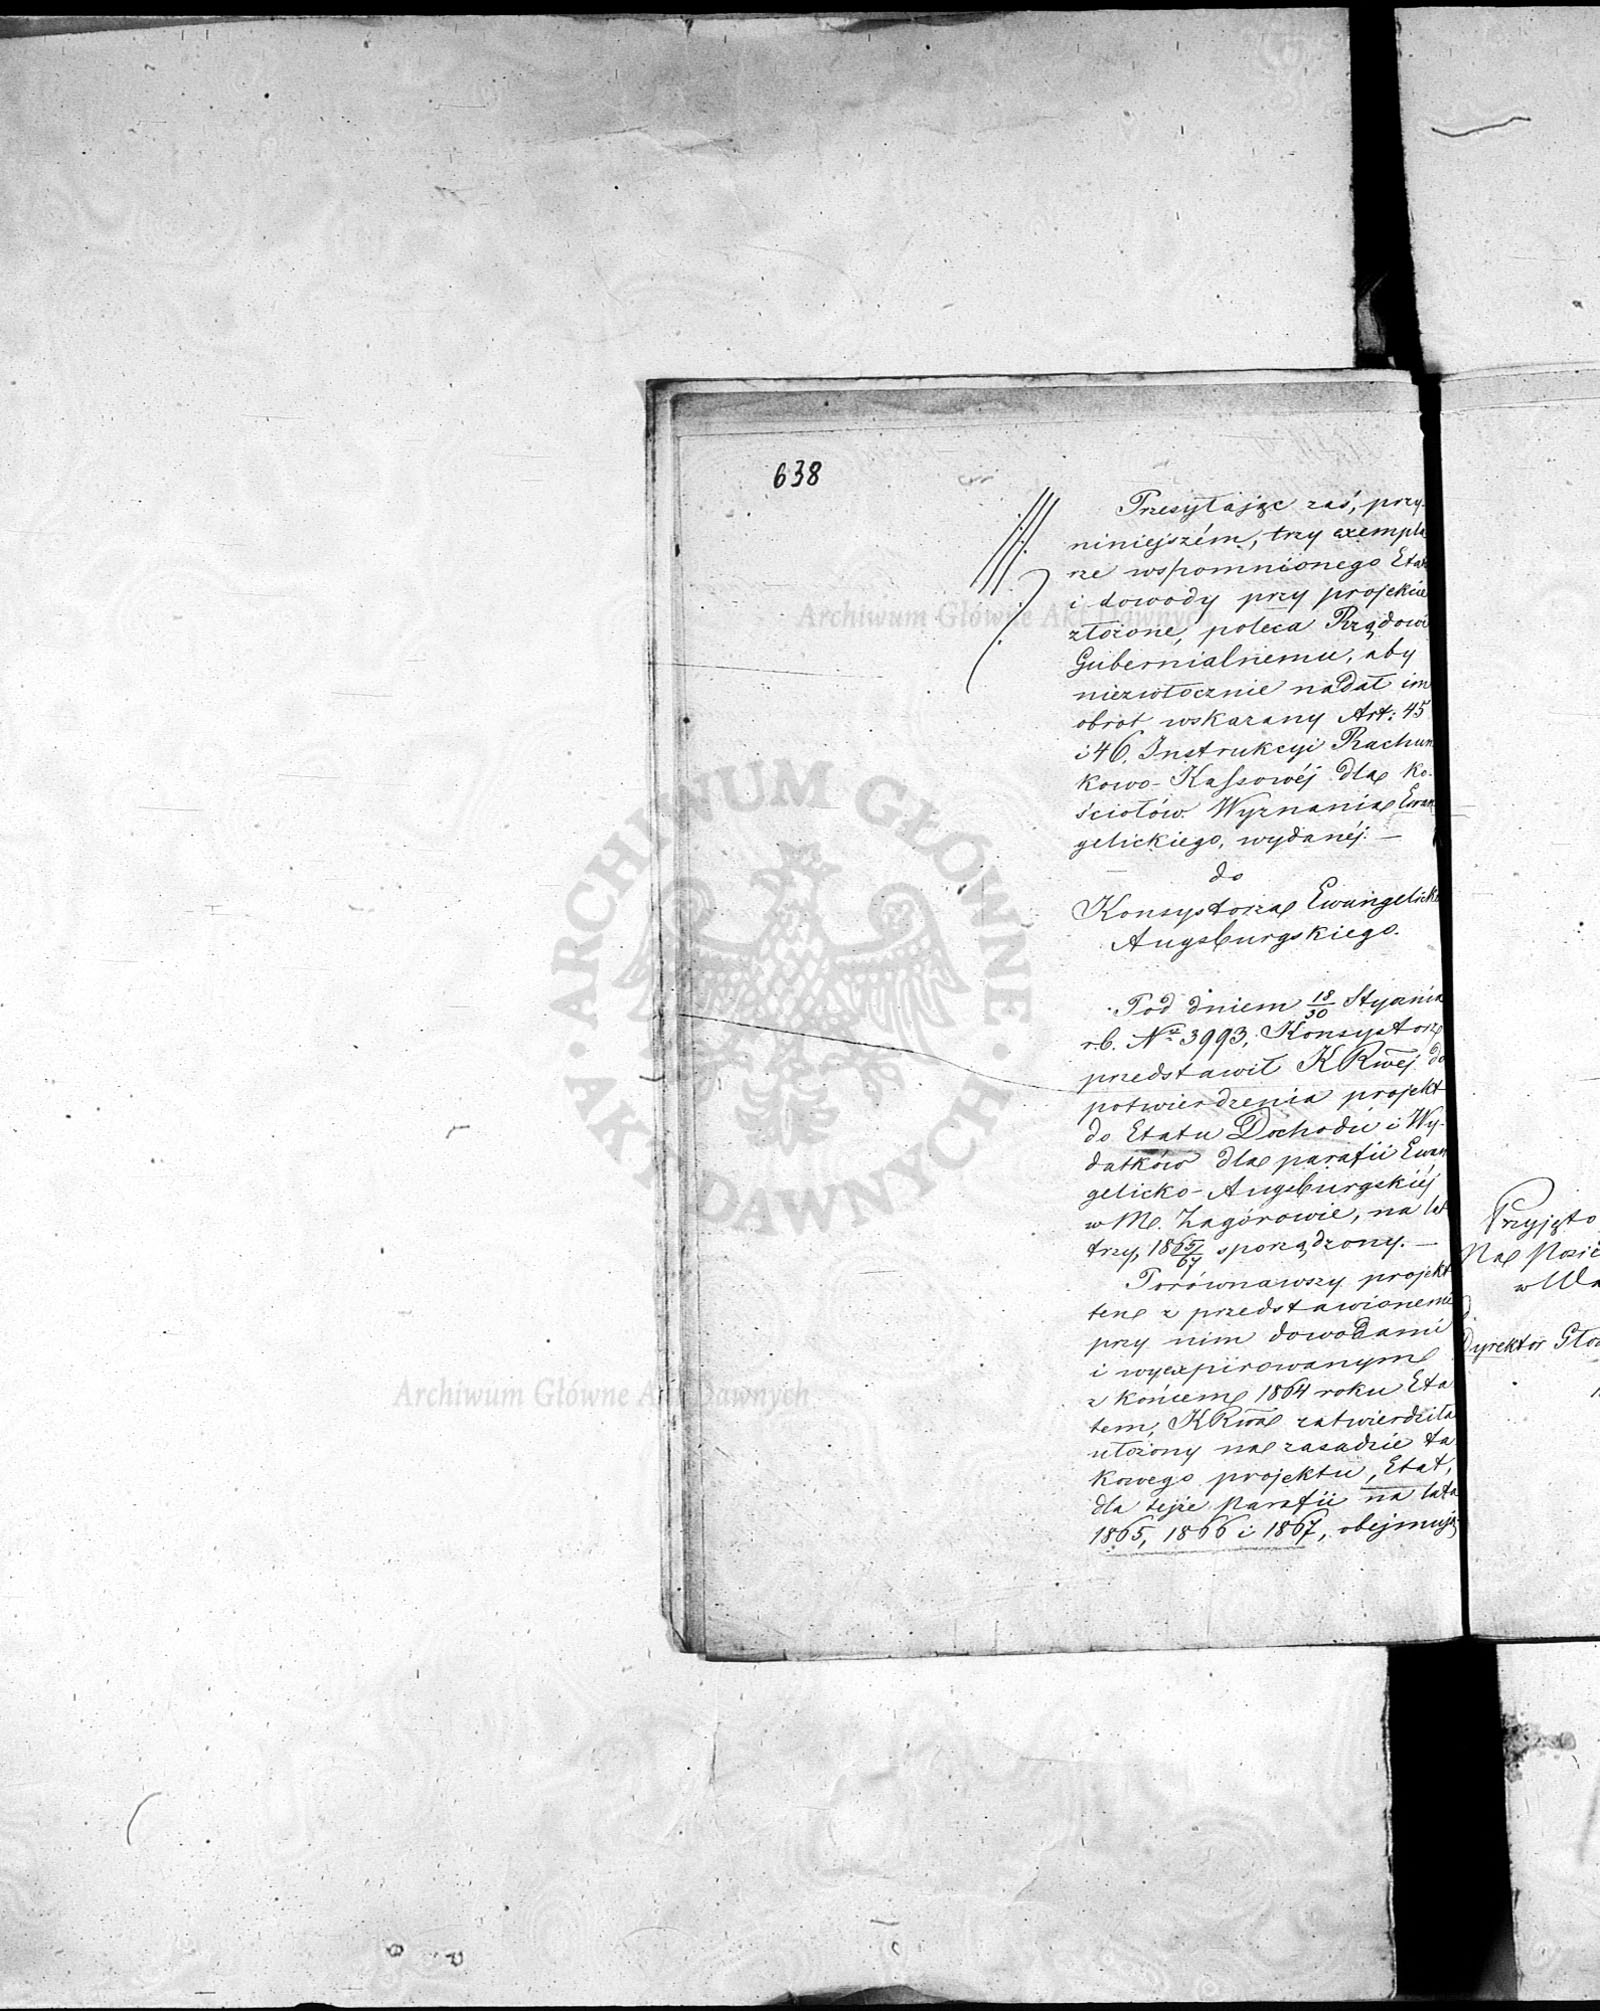 638
Przesyłając zaś, przy
niniejszém, trzy exempla
rze wspomnionego Etatu
i dowody przy projekcie
złożone, poleca Rządowi
Gubernialnemu, aby
niezwłocznie nadał im
obrot wskazany Art: 45
i 46. Instrukcyi Rachun
kowo-Kassowéj dla Ko-
ściołów Wyznania Ewan
gelickiego, wydanéj. —
do
Konsystorza Ewangelicko
Augsburgskiego.
Pod dniem 18/30 Stycznia
r.b. Nr 3993, Konsystorz
przedstawił KRwéj do
potwierdzenia projekt
do Etatu Dochodu i Wy-
datków dla parafii Ewan
gelicko-Augsburgskiéj
w M. Zagórowie, na lat
trzy, 1865/67 sporządzony. —
Porównawszy projekt
ten z przedstawionemi
przy nim dowodami
i wyexpirowanym
z końcem 1864 roku Eta
tem, KRwa zatwierdziła
ułożony na zasadzie ta
kowego projektu, Etat,
dla tejże Parafii na lata
1865, 1866 i 1867, obejmują
Przyjęto
Na
w
Dyrektor
Archiwum Główne Akt Dawnych
Archiwum Główne Akt Dawnych
ARCHIWUM GŁÓWNE · AKT DAWNYCH ·